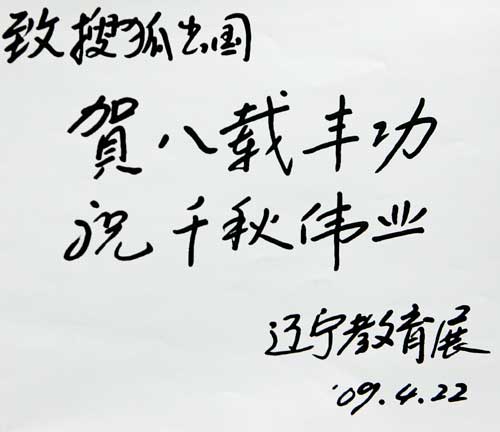 致搜狐出国
賀八载丰功
祝千秋伟业
辽宁教育展
'09.4.22